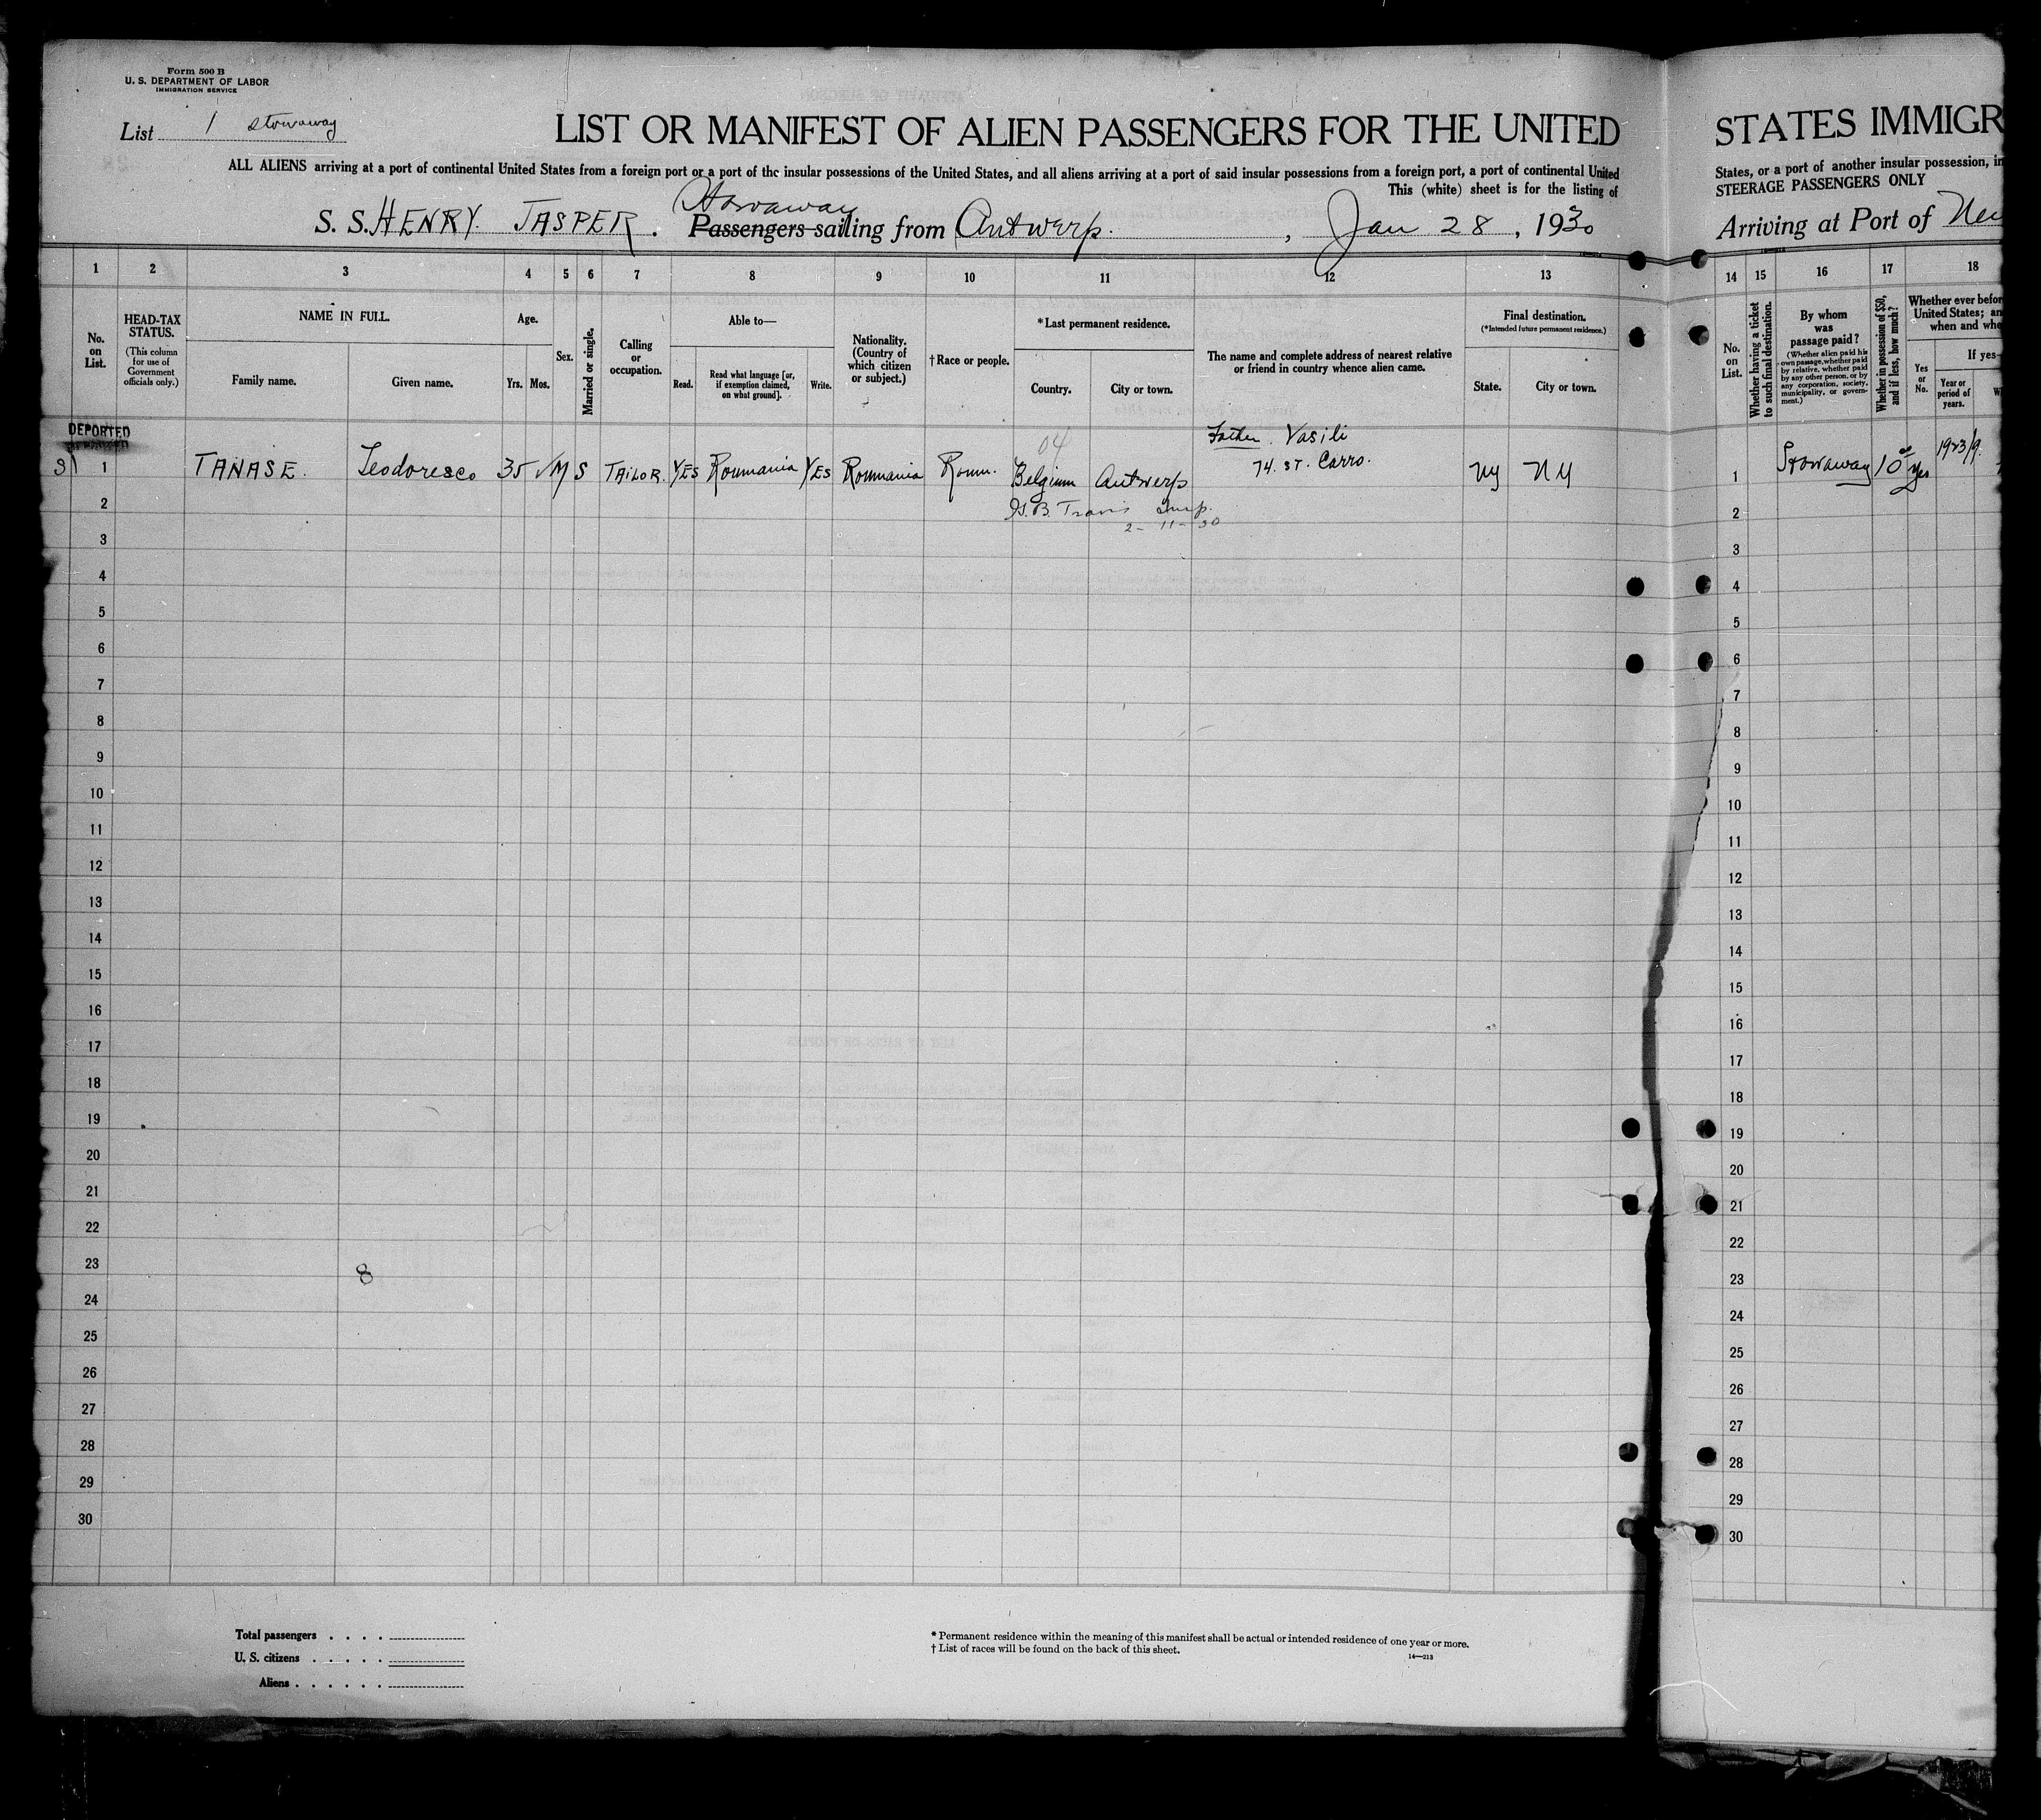 Form 500 B
U. S. DEPARTMENT OF LABOR
IMMIGRATION SERVICE
List 1 stowaway
LIST OR MANIFEST OF ALIEN PASSENGERS FOR THE UNITED
ALL ALIENS arriving at a port of continental United States from a foreign port or a port of the insular possessions of the United States, and all aliens arriving at a port of said insular possessions from a foreign port, a port of continental United
This (white) sheet is for the listing of
Stowaway
S. S. HENRY JASPER. Passengers sailing from Antwerp. , Jan 28 , 1930
1 2 3 4 5 6 7 8 9 10 11 12 13
No. on List.
HEAD-TAX STATUS.
(This column for use of Government officials only.)
NAME IN FULL.
Family name. Given name.
Age.
Yrs. Mos.
Sex.
Married or single.
Calling or occupation.
Able to—
Read. Read what language [or, if exemption claimed, on what ground]. Write.
Nationality. (Country of which citizen or subject.)
†Race or people.
*Last permanent residence.
Country. City or town.
The name and complete address of nearest relative or friend in country whence alien came.
Final destination.
(*Intended future permanent residence.)
State. City or town.
DEPORTED
Father Vasili
04
1 TANASE. Teodoresco 35 M S TAILOR. YES Roumania YES Roumania Roum. Belgium Antwerp 74. ST. Carro. NY NY
2
Travis Insp.
2-11-30
3
4
5
6
7
8
9
10
11
12
13
14
15
16
17
18
19
20
21
22
23
8
24
25
26
27
28
29
30
Total passengers . . . .
U. S. citizens . . . . .
Aliens . . . . . .
* Permanent residence within the meaning of this manifest shall be actual or intended residence of one year or more.
† List of races will be found on the back of this sheet.
14—213
STATES IMMIGR
States, or a port of another insular possession, in
STEERAGE PASSENGERS ONLY
Arriving at Port of New
14 15 16 17 18
No. on List.
Whether having a ticket to such final destination.
By whom was passage paid?
(Whether alien paid his own passage, whether paid by relative, whether paid by any other person, or by any corporation, society, municipality, or government.)
Whether in possession of $50, and if less, how much?
Whether ever before
United States; an
when and whe
Yes or No.
If yes—
Year or period of years.
W
1 Stowaway 10 yes 1923/9.
2
3
4
5
6
7
8
9
10
11
12
13
14
15
16
17
18
19
20
21
22
23
24
25
26
27
28
29
30